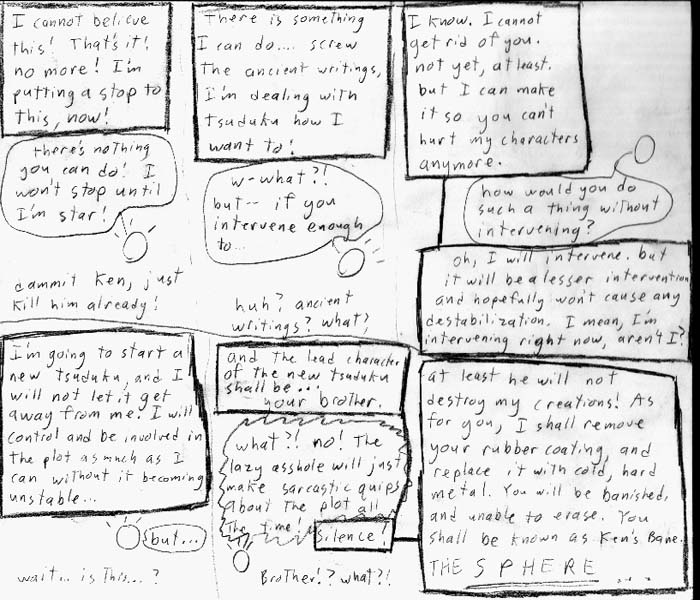 I cannot believe
this! That's it!
no more! I'm
putting a stop to
this, now!
there's nothing
you can do! I
won't stop until
I'm star!
dammit Ken, just
kill him already!
There is something
I can do.... screw
The ancient writings,
I'm dealing with
Tsuduku how I
want to!
w-what?!
but-- if you
intervene enough
to...
huh? ancient
writings? what?
I know. I cannot
get rid of you.
not yet, at least.
but I can make
it so you can't
hurt my characters
anymore.
how would you do
such a thing without
intervening?
oh, I will intervene. but
it will be a lesser intervention
and hopefully won't cause any
destabilization. I mean, I'm
intervening right now, aren't I?
I'm going to start a
new Tsuduku, and I
will not let it get
away from me. I will
control and be involved in
The plot as much as I
can without it becoming
unstable...
but...
wait... is This...?
and the lead character
of the new Tsuduku
shall be...
your brother.
what?! no! The
lazy asshole will just
make sarcastic quips
About the plot all
The time!
silence!
Brother!? what?!
at least he will not
destroy my creations! As
for you, I shall remove
your rubber coating, and
replace it with cold, hard
metal. You will be banished,
and unable to erase. You
shall be known as Ken's Bane.
THE SPHERE ....